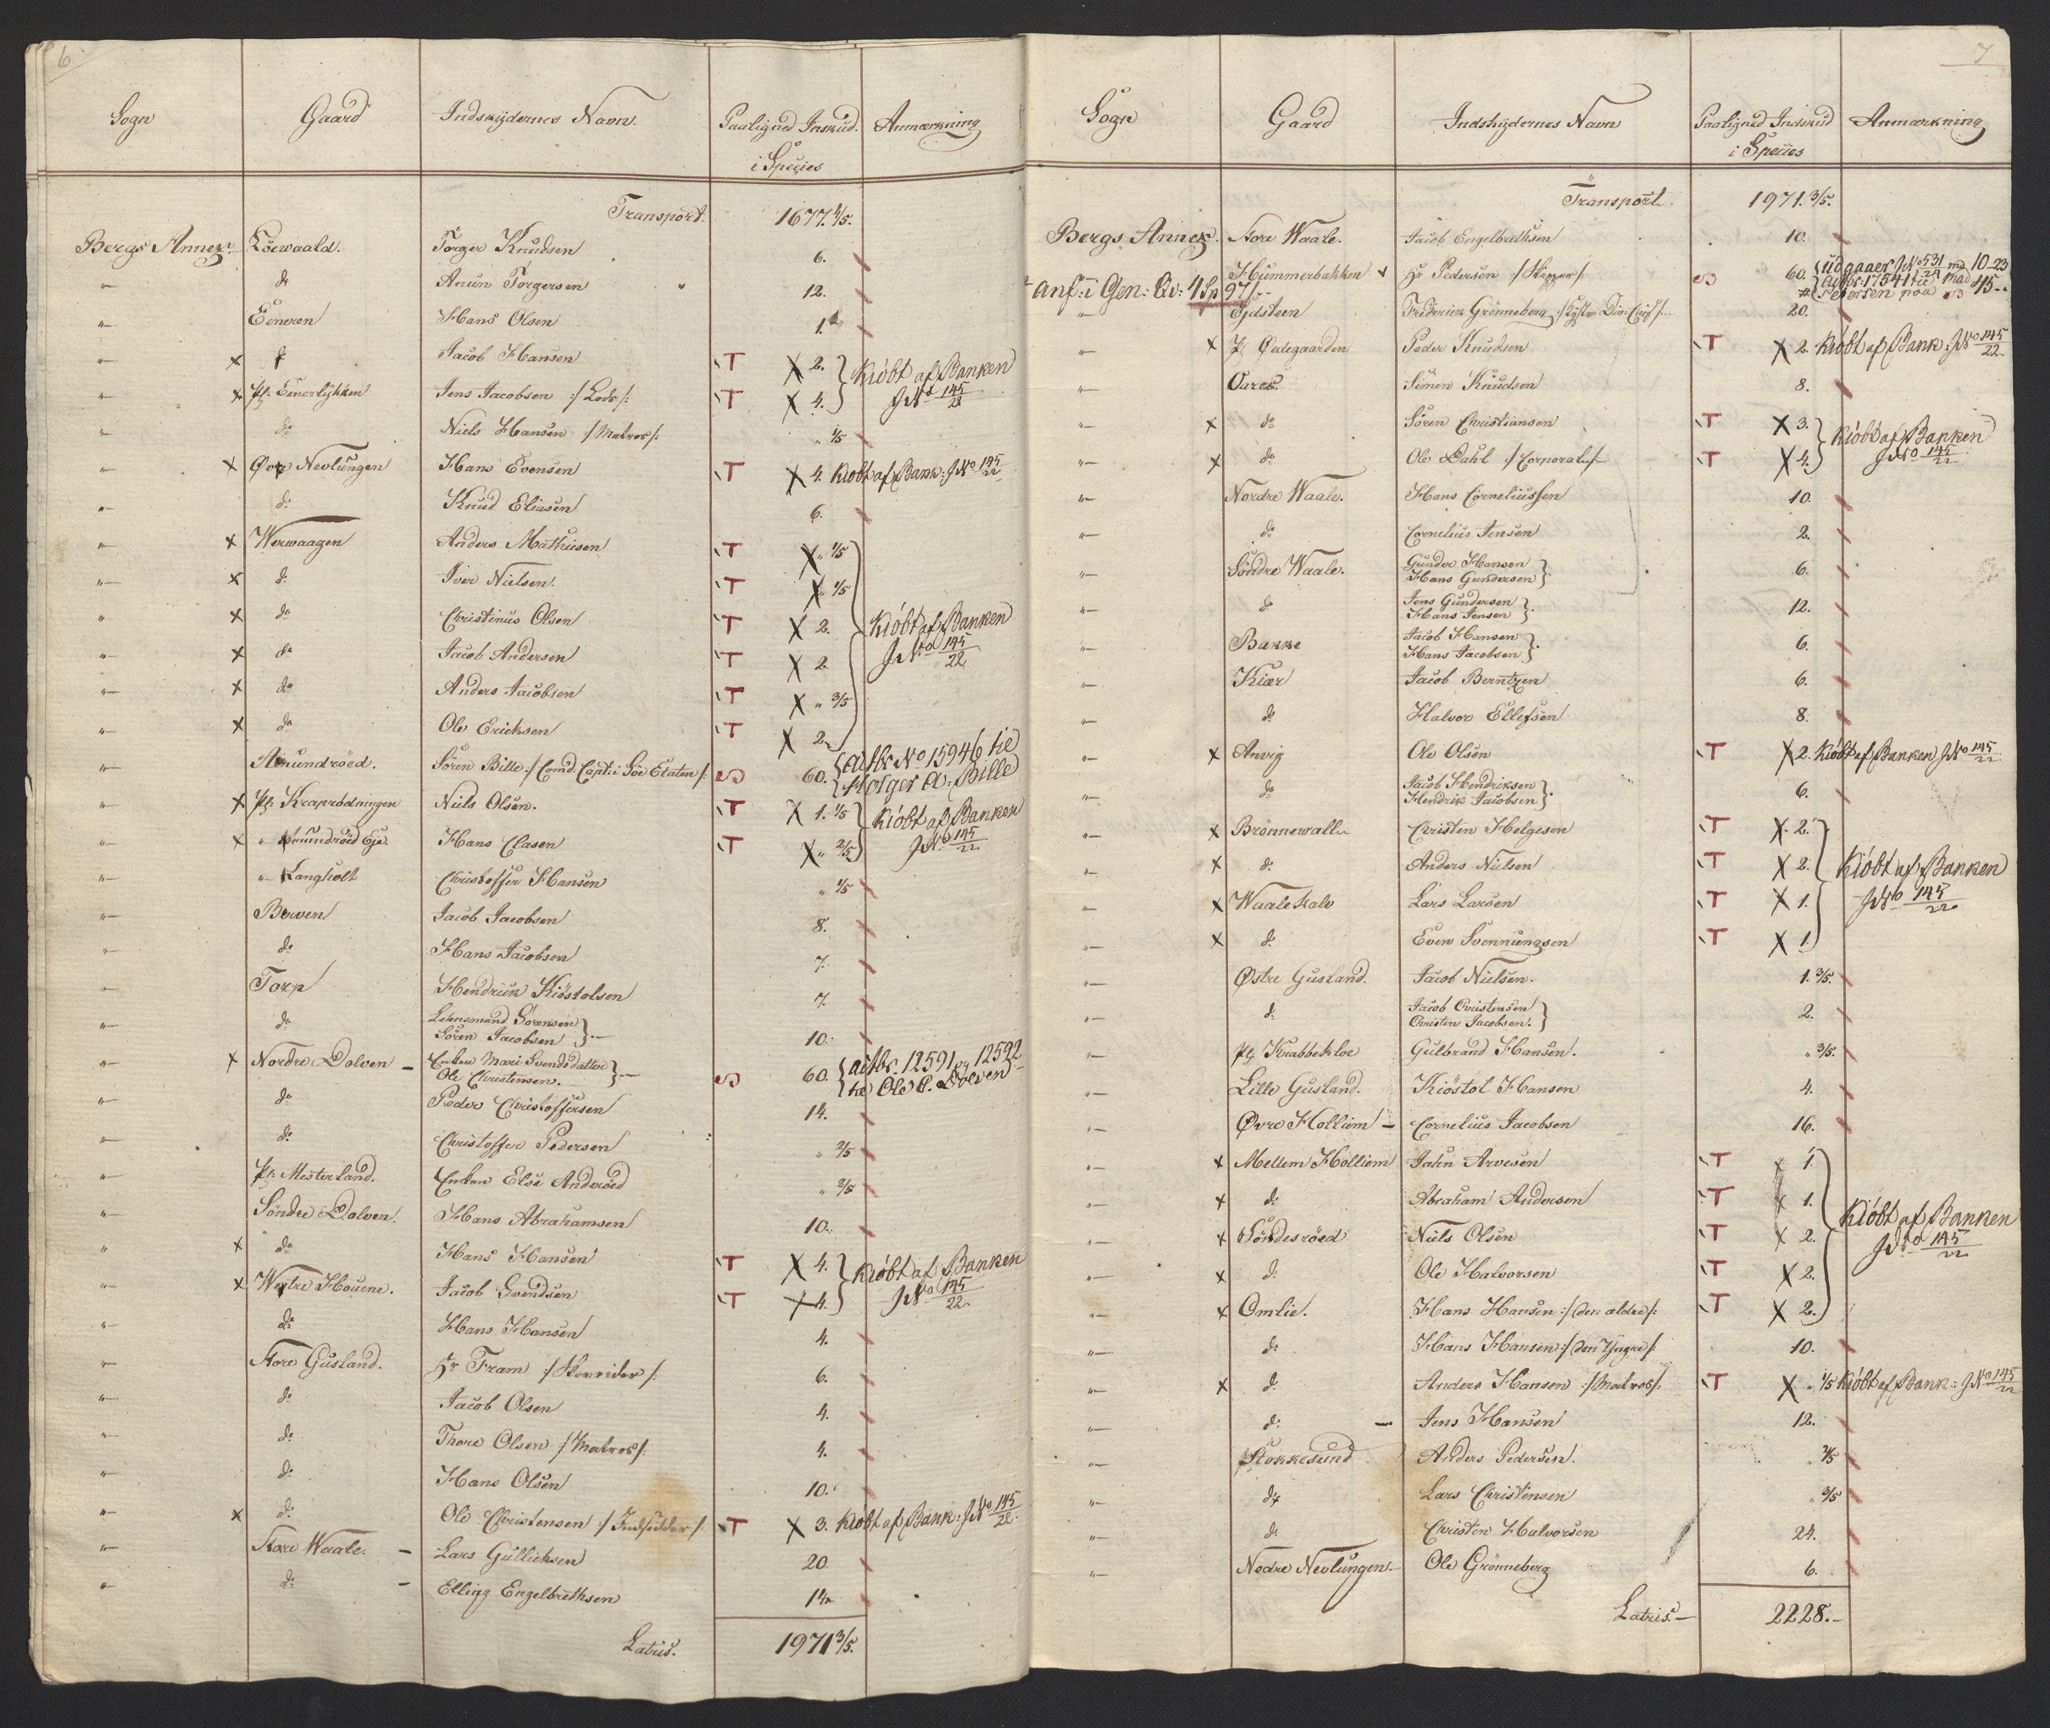 6
Sogn Gaard Indskydernes Navn. Paaligned Inskud i Species Anmærkning
Transport. 1677. 4/5.
Bergs Annex. Torger Knudsen 6.
"— do Anun Torgersen 12.
"— Eeneren Hans Olsen 1.
"— x Jacob Hansen T X 2. } Kiöbt af Banken
"— x Pl: Eenerlykken Jens Jacobsen :/Lods/: T X 4. } JNo 145/22
"— do Niels Hansen :/Matros/: " 1/5
"— x Øvre Nevlungen Hans Evensen T X 4. Kiöbt af Bank: JNo 145/22
"— do Knud Eliasen 6.
"— x Werwaagen Anders Mathiesen T X " 1/5
"— x do Iver Nielsen. T X " 1/5
" x do Christinus Olsen T X 2. Kiöbt af Banken
"— x do Jacob Andersen T X 2 JNo 145/22
"— x do Anders Jacobsen T X " 3/5
"— x do Ole Ericksen T X 2
"— Amundröed. Sören Bille :/Comd: Capt: i Söe Etaten/: S 60. { Actbr No 15946 til Holger A: Bille
"— x Pl: Krapvödningen Niels Olsen. T X 1. 1/5 } Kiöbt af Banken
"— x " Amundröed Eje. Hans Clasen T X " 2/5 } JNo 145/22
"— "— Langholt Christoffer Hansen " 1/5
"— Berven Jacob Jacobsen 8.
"— do Hans Jacobsen 7.
"— Torp Hendrik Kiöstolsen 7.
"— do Lehnsmand Sörensen
Sören Jacobsen } 10.
"— x Nordre Dolven — Enken Mari Svendsdatter
Ole Christensen. } S 60. { Actbr. 12591 og 12592
til Ole C. Dolven
"— do Peder Christoffersen 14.
"— do Christoffer Pedersen " 2/5
"— Pl: Mesterland. Enken Else Anderöed " 2/5
"— Söndre Dolven. Hans Abrahamsen 10.
" x do Hans Hansen T X 4. } Kiöbt af Banken
"— x Westre Houene. Jacob Svendsen T X 4. } JNo 145/22
"— do Hans Hansen 4.
"— Store Gusland. Hr Fram :/Skovrider/: 6.
"— do Jacob Olsen 4.
"— do Thore Olsen :/Matros/: 4.
"— do Hans Olsen 10.
"— x do Ole Christensen :/Indsidder/: T X 3. Kiöbt af Bank: JNo 145/22
"— Store Waale. — Lars Gulliksen 20
"— do — Elling Engelbrethsen 14
Latris. 1971 3/5.
7
Sogn Gaard Indskydernes Navn Paaligned Indskud i Species Anmærkning
Transport. 1971. 3/5.
Bergs Annex. Store Waale. Jacob Engelbrethsen 10.
Hummerbakken Hr Pedersen :/Skipper/: S 60. { udgaaer JNo 531/24 med 10-23
Anf: i Gen: Qv: 4 Sp 97 Actbr. 17541 til Mad
Pedersen paa S 45
"— Tydsteen Friderich Grönneberg 20.
"— x Pl Ødegaarden Peder Knudsen T X 2. Kiöbt af Bank: JNo 145/22
"— Oares. Simen Knudsen 8.
"— x do Sören Christiansen T X 3. } Kiöbt af Banken
"— x do Ole Dahl :/Corporal/: T X 4. } JNo 145/22
"— Nordre Waale. Hans Corneliussen 10.
"— do Cornelius Jensen 2.
"— Söndre Waale. Gunder Hansen
Hans Gundersen } 6.
"— do Jens Gundersen
Hans Jensen } 12.
"— Bakke Jacob Hansen
Hans Jacobsen } 6.
"— Kiær Jacob Berntzen 6.
"— do Halvor Ellefsen 8.
"— x Anvig Ole Olsen T X 2. Kiöbt af Banken JNo 145/22
"— do Jacob Hendriksen
Hendrik Jacobsen } 6.
"— x Brönnewall Christen Helgesen T X 2.
"— x do Anders Nielsen T X 2. Kiöbt af Banken
"— x Waalekalv Lars Larsen T X 1. JNo 145/22
"— x do Even Svennungsen T X 1
"— Østre Gusland. Jacob Nielsen. 1. 3/5.
"— do Jacob Christensen
Christen Jacobsen. } 2.
"— Pl Krabbekloe Gulbrand Hansen. " 3/5.
"— Lille Gusland. Kiöstol Hansen 4.
"— Øvre Holliem — Cornelius Jacobsen 16.
"— x Mellem Holliem Jahn Arvesen T x 1.
"— x do Abraham Andersen T x 1. Kiöbt af Banken
"— x Söndesröed Niels Olsen T x 2. JNo 145/22
"— x do Ole Halvorsen T X 2.
"— x Omlie. Hans Hansen :/den ældre/: T X 2.
"— do Hans Hansen :/den Yngre/: 10.
"— x do Anders Hansen :/Matros/: T X " 1/5 Kiöbt af Bank: JNo 145/22
"— do — Jens Hansen 12.
"— Stokkesund Anders Pedersen. " 3/5
"— do Lars Christensen " 3/5
"— do Christen Halvorsen 24.
"— Nedre Nevlungen — Ole Grönneberg 6.
Latris.— 2228.—